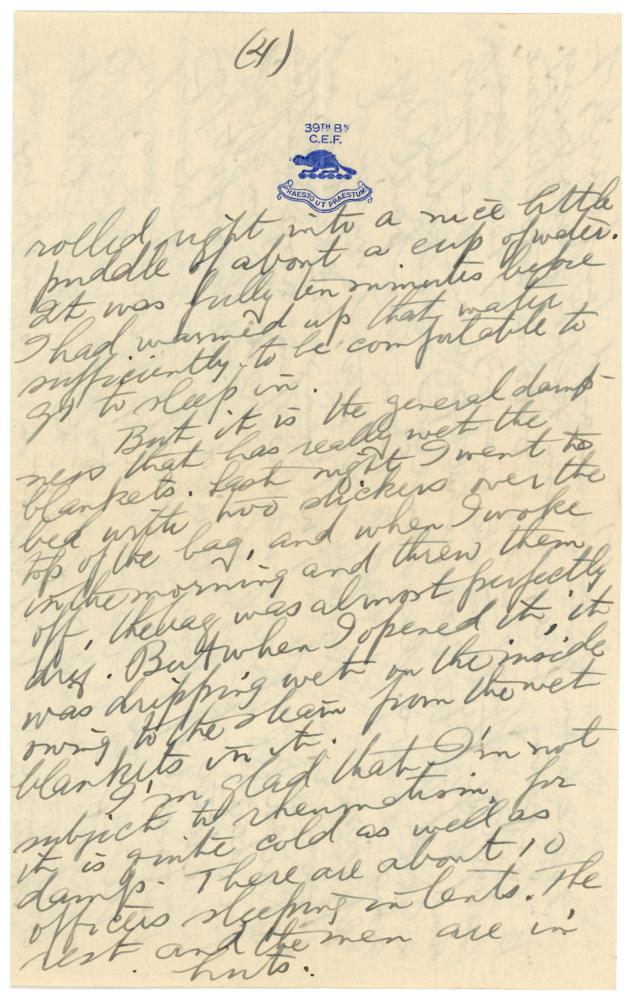 (4)
39TH BN
C.E.F.
PRAESTO UT PRAESTUM
rolled right into a nice little
puddle of about a cup of water.
It was fully ten minutes before
I had warmed up that water
sufficiently to be comfortable to
go to sleep in.
But it is the general damp-
ness that has really wet the
blankets. Last night I went to
bed with two slickers over the
top of the bag, and when I woke
in the morning and threw them
off, the bag was almost perfectly
dry. But when I opened it, it
was dripping wet on the inside
owing to the steam from the wet
blankets in it.
I'm glad that I'm not
subject to rheumatism, for
it is quite cold as well as
damp. There are about 10
officers sleeping in tents. The
rest and the men are in
huts.